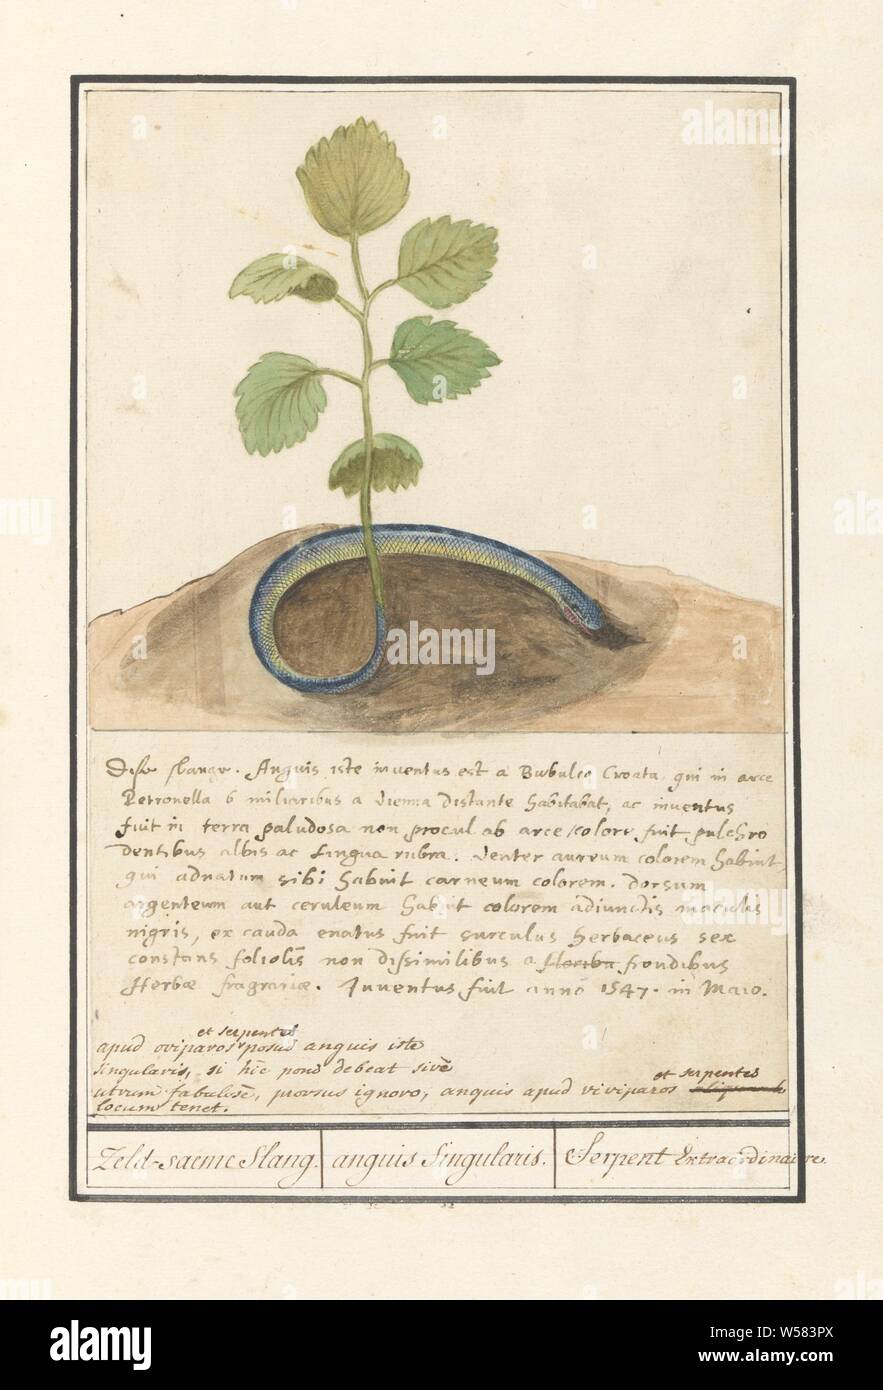 Dese slange. Anguis iste inventus est a Bubulco Croata, qui in arce
Petronella 6 miliaribus a Vienna distante habitabat, ac inventus
fuit in terra paludosa non procul ab arce, colore fuit pulchro
dentibus albis ac Lingua rubra. Venter aureum colorem habuit,
qui adnatum sibi habuit carneum colorem. Dorsum
argenteum aut ceruleum habuit colorem adiunctis maculis
nigris, ex cauda enatus fuit surculus herbaceus sex
constans foliolis non dissimilibus a frondibus
Herbæ fragrariæ. Inventus fuit anno 1547. in Maio.
et serpentes
apud oviparos posui anguis iste
singularis, si hic poni debeat sive
et serpentes
utrum fabulose, prorsus ignoro, anguis apud viviparos
locum tenet.
Zeld-saeme Slang. anguis Singularis. Serpent Extraordinaire.
alamy
alamy
alamy
a
alamy stock photo
W583PX
www.alamy.com